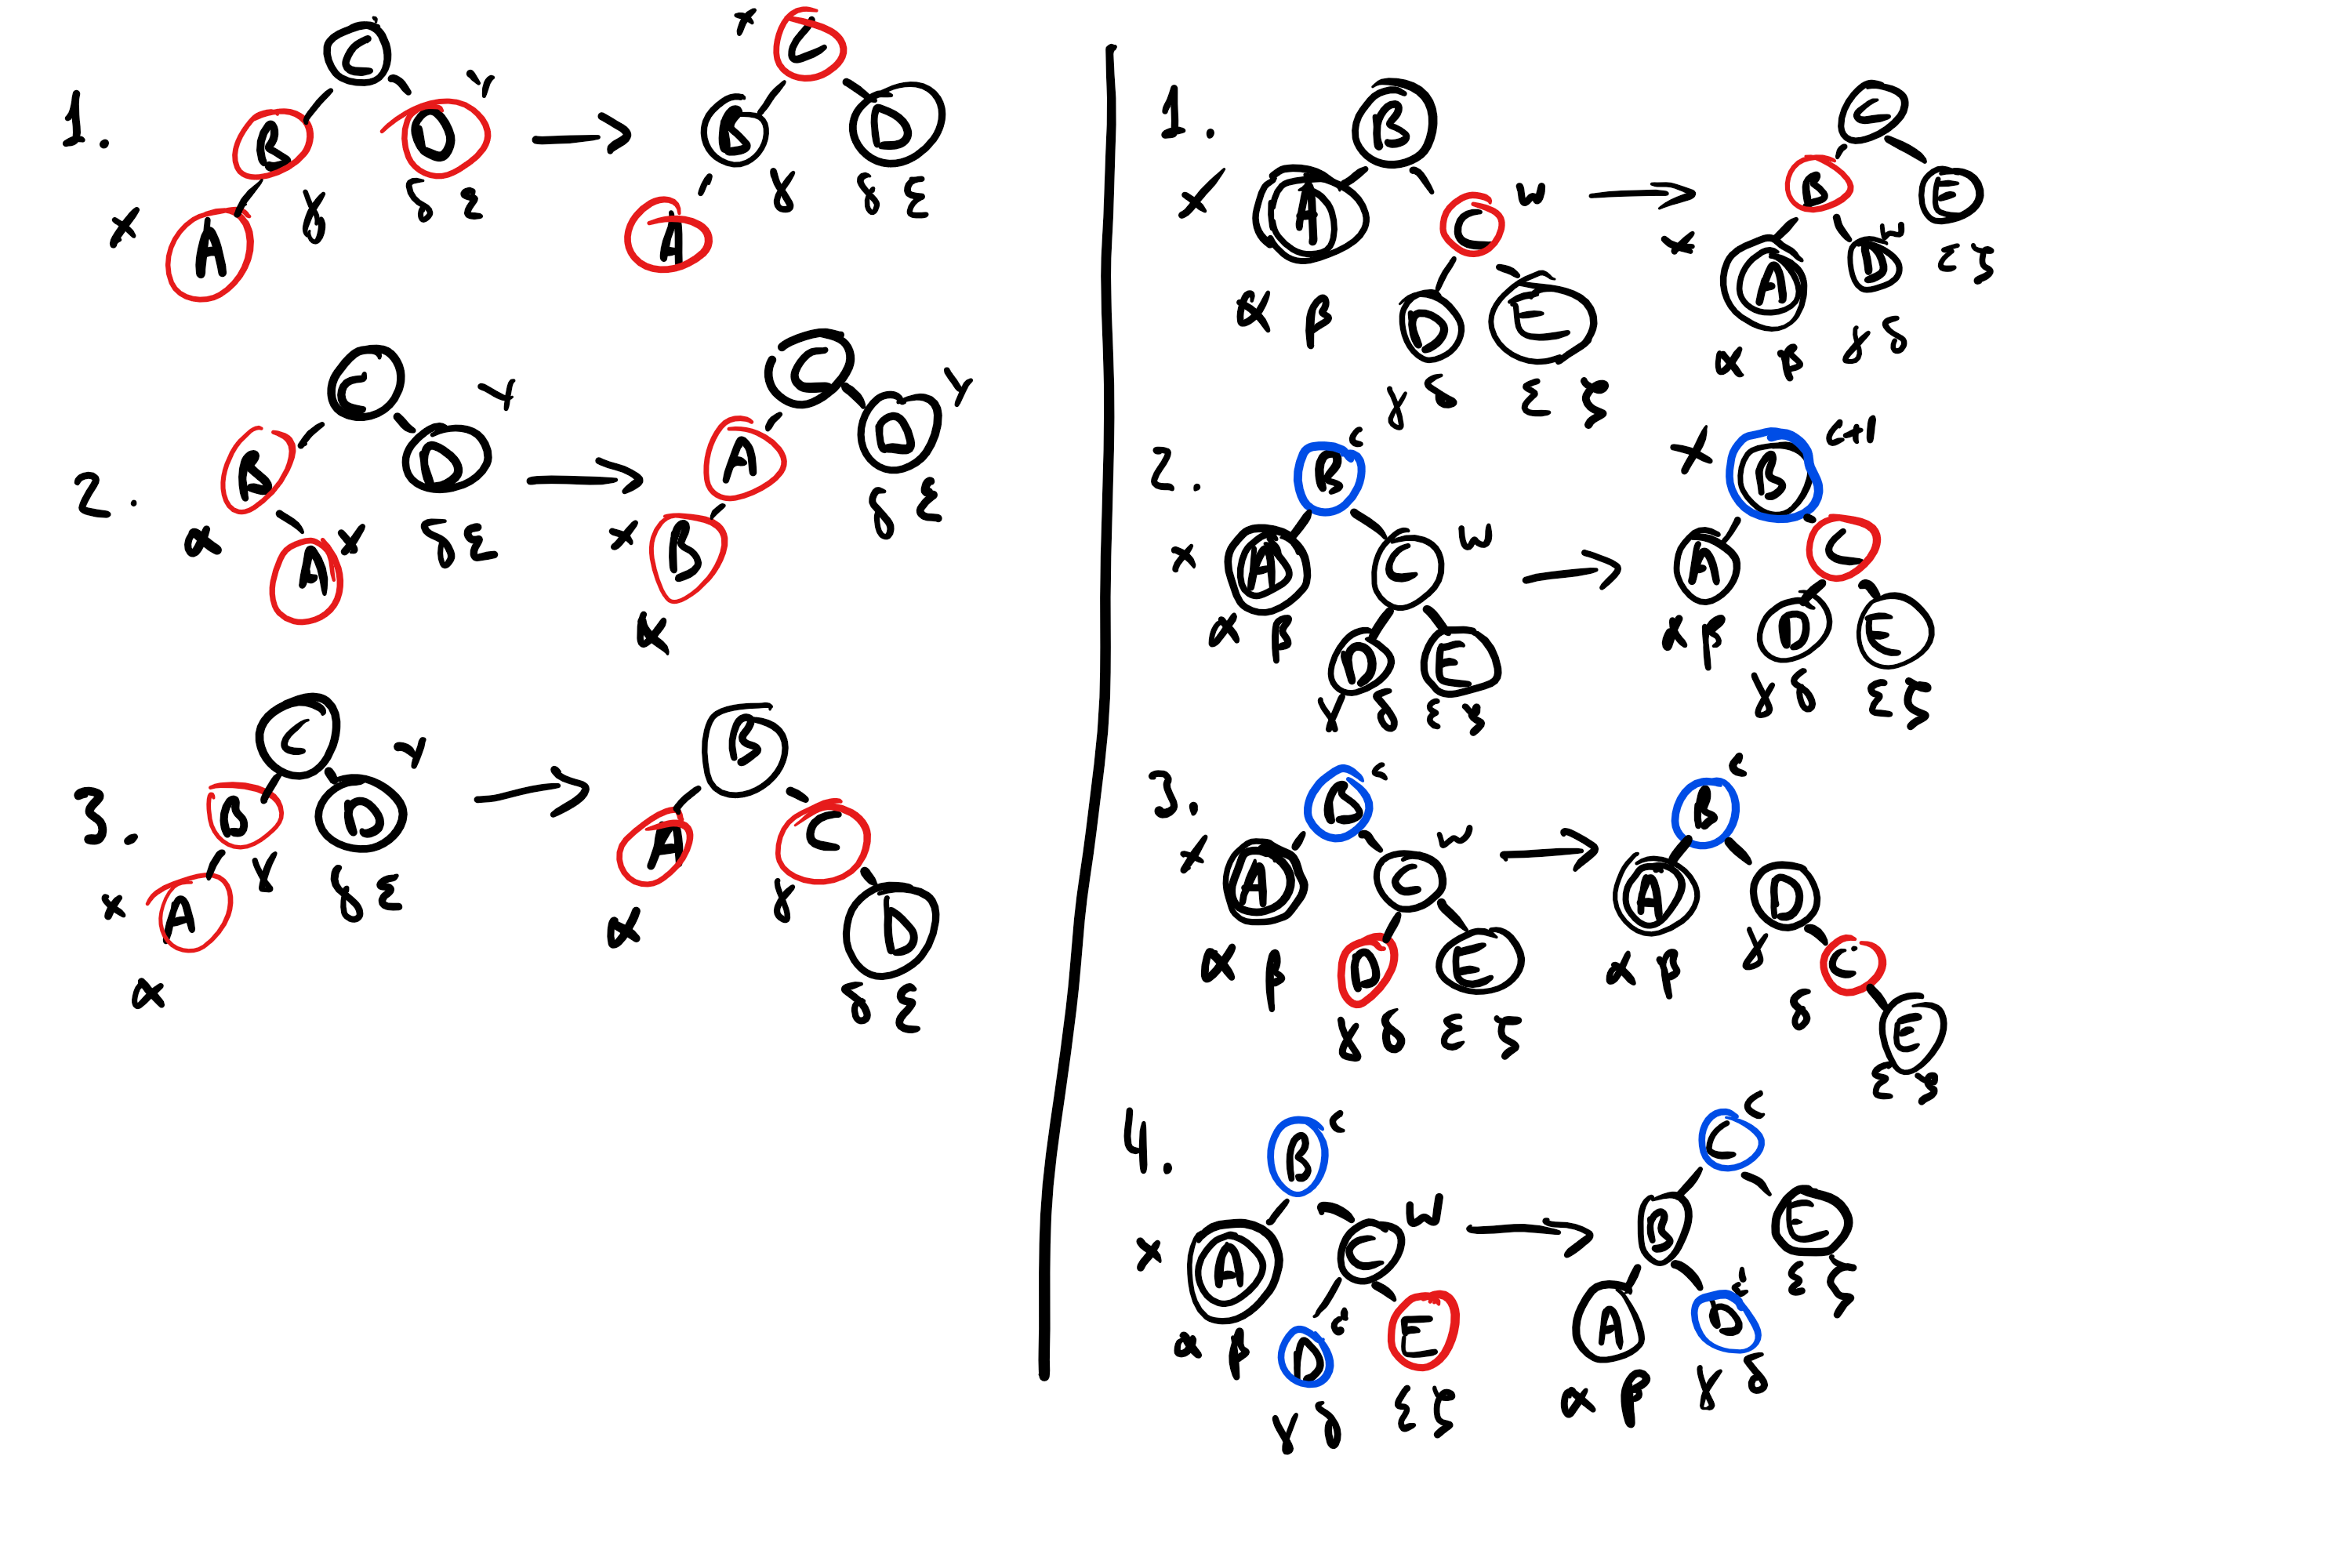 1.
C
B D y
x A γ δ ε
x C
B D
A γ δ ε
2.
C
B D y
α A x δ ε
C
A D y
x B δ ε
α
3.
C
B D y
x A γ δ ε
α
B
A C
α γ D
δ ε
1.
B
x A C w
α β D E
γ δ ε ζ
C
B E
x A D w ε ζ
α β γ δ
2.
B c
x A C w
α β D E
γ δ ε ζ
x B c+1
A C
α β D E
γ δ ε ζ
3.
B c
x A C w
α β D E
γ δ ε ζ
B c
A D
α β γ C
δ E
ε ζ
4.
B c
x A C w
α β D c' E
γ δ ε ζ
C c
B E
A D c' ε ζ
α β γ δ